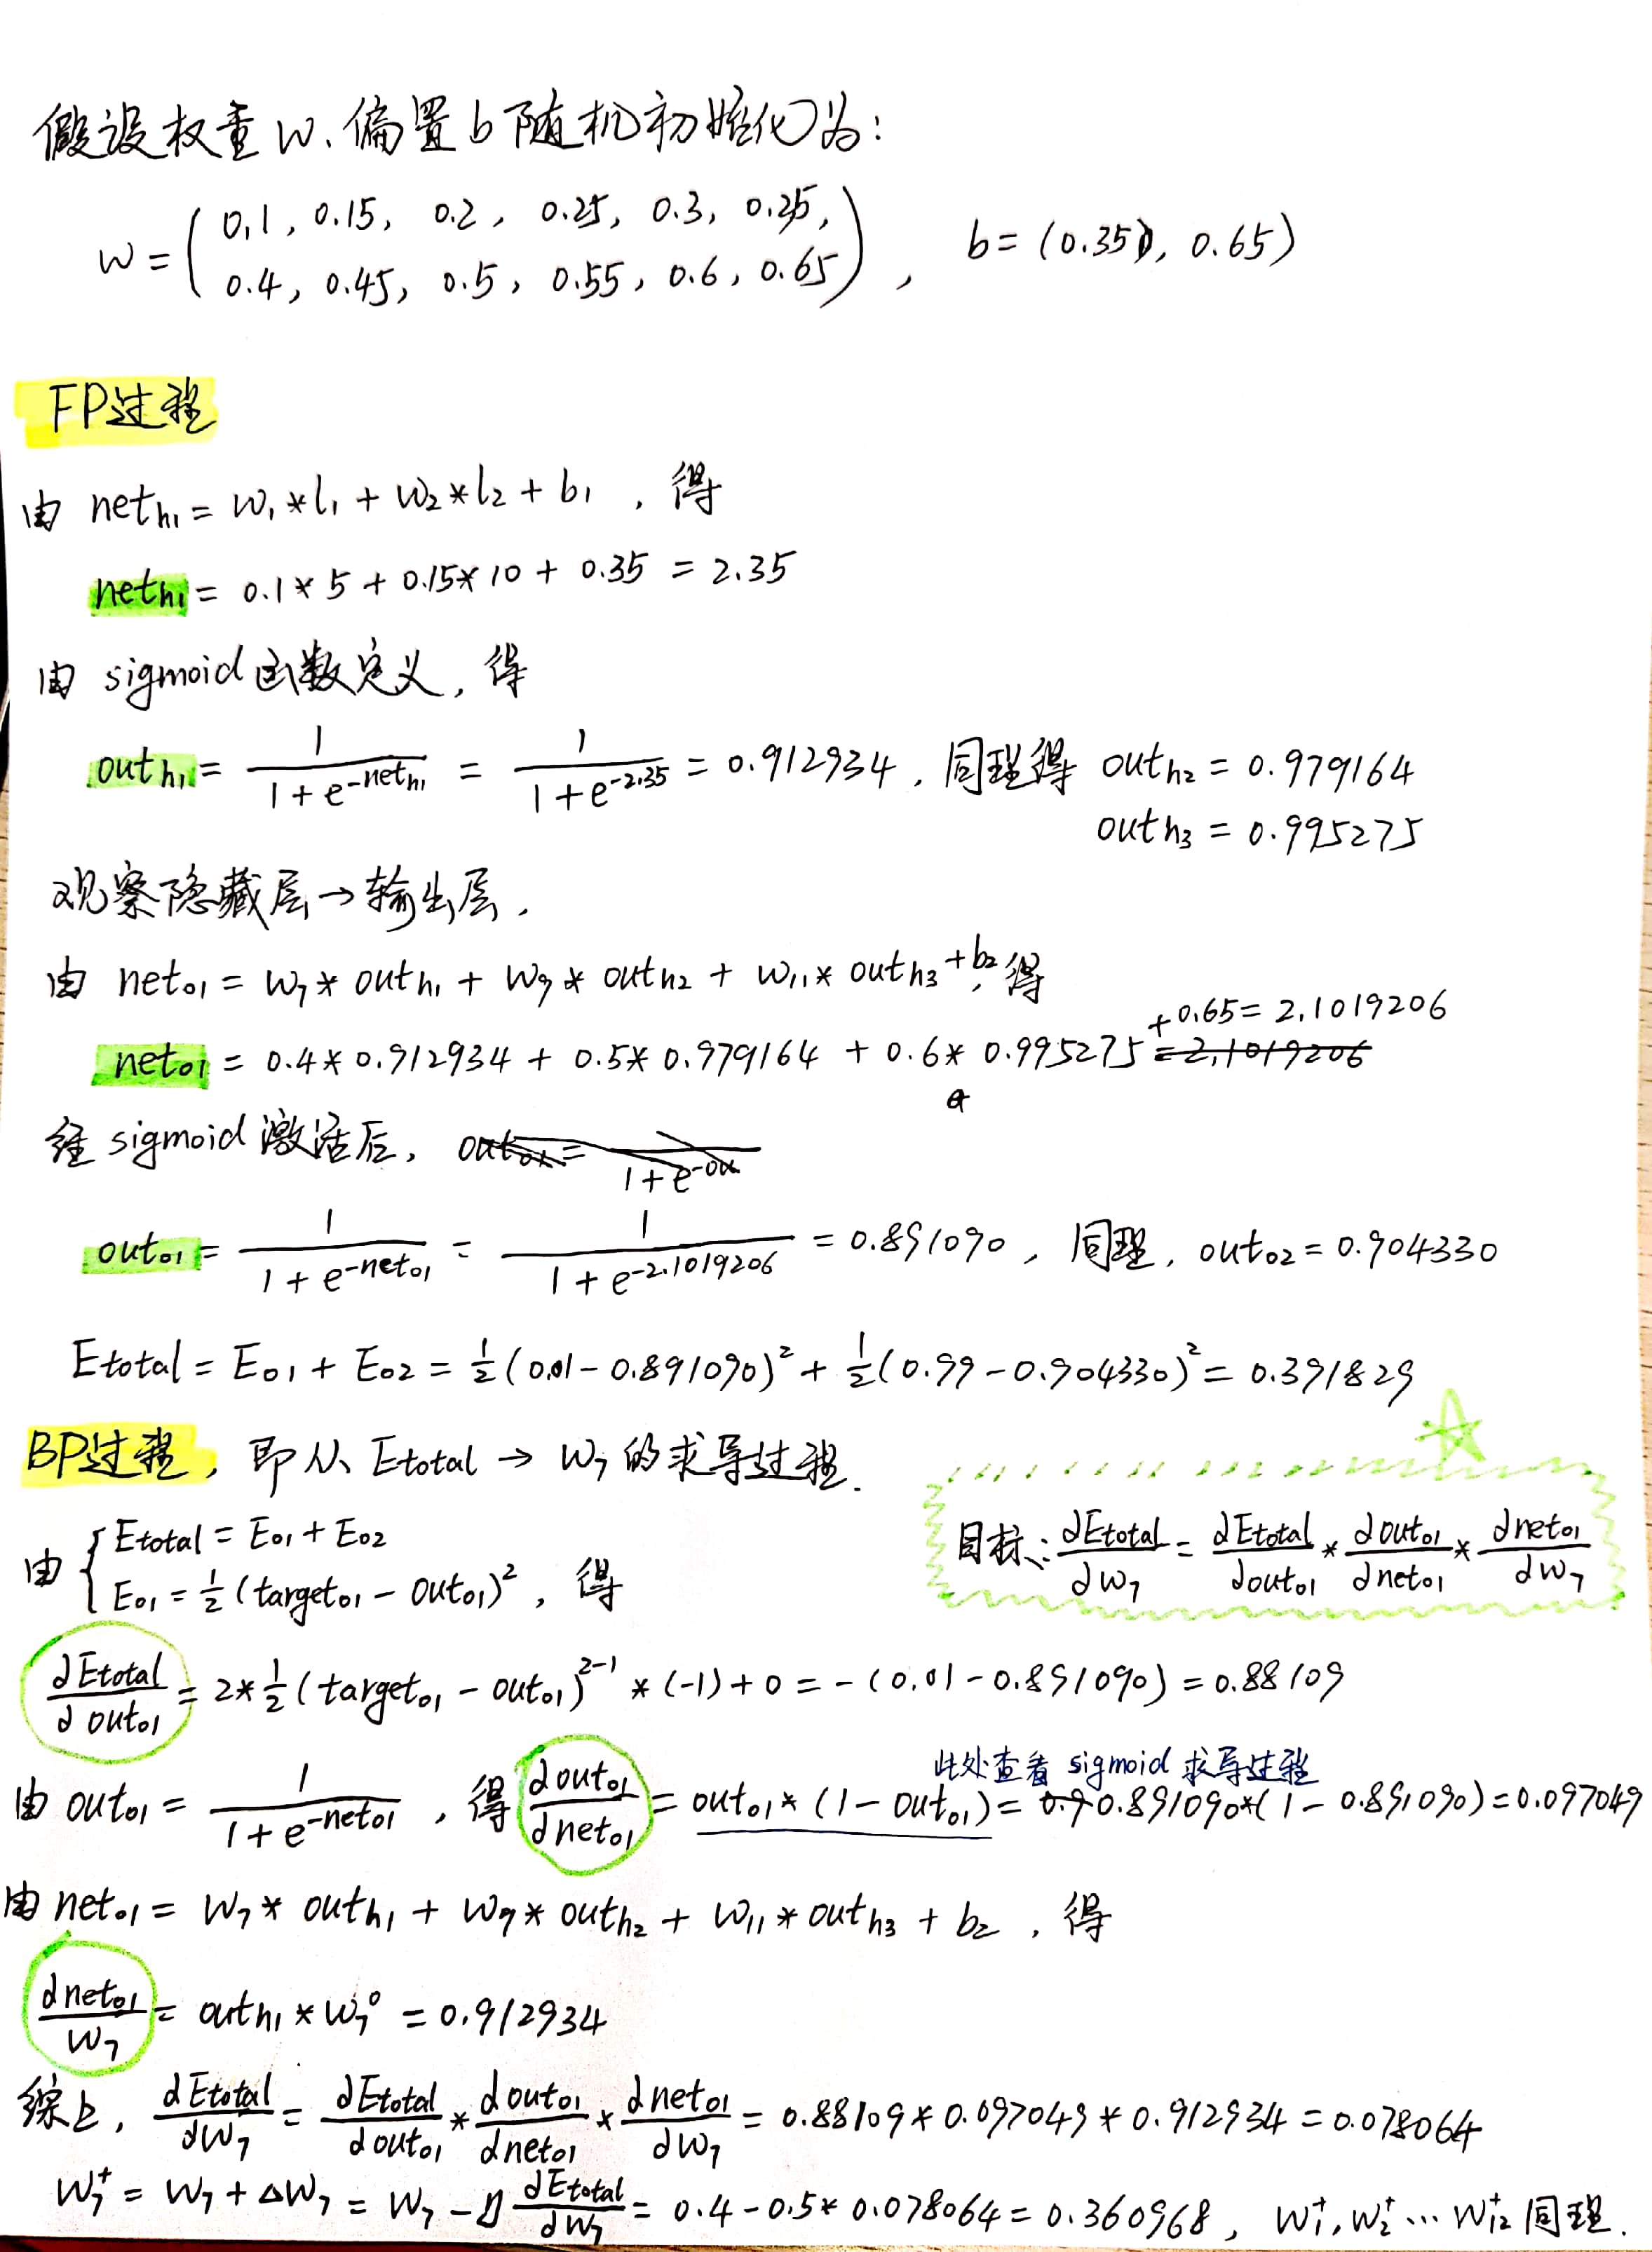 假设权重 w、偏置 b 随机初始化为：
w = ( 0.1, 0.15, 0.2, 0.25, 0.3, 0.35,
0.4, 0.45, 0.5, 0.55, 0.6, 0.65 ), b = (0.35, 0.65)
FP过程
由 net_h1 = w_1 * l_1 + w_2 * l_2 + b_1 , 得
net_h1 = 0.1 * 5 + 0.15 * 10 + 0.35 = 2.35
由 sigmoid 函数定义, 得
out_h1 = 1/(1 + e^(-net_h1)) = 1/(1 + e^(-2.35)) = 0.912934 , 同理得 out_h2 = 0.979164
out_h3 = 0.995275
观察隐藏层 → 输出层,
由 net_o1 = w_7 * out_h1 + w_9 * out_h2 + w_11 * out_h3 + b_2, 得
net_o1 = 0.4 * 0.912934 + 0.5 * 0.979164 + 0.6 * 0.995275 + 0.65 = 2.1019206
经 sigmoid 激活后,
out_o1 = 1/(1 + e^(-net_o1)) = 1/(1 + e^(-2.1019206)) = 0.891090 , 同理, out_o2 = 0.904330
Etotal = E_o1 + E_o2 = 1/2 (0.01 - 0.891090)^2 + 1/2 (0.99 - 0.904330)^2 = 0.391829
BP过程, 即从 Etotal → w_7 的求导过程.
目标: ∂Etotal/∂w_7 = ∂Etotal/∂out_o1 * ∂out_o1/∂net_o1 * ∂net_o1/∂w_7
由 { Etotal = E_o1 + E_o2
E_o1 = 1/2 (target_o1 - out_o1)^2 , 得
∂Etotal/∂out_o1 = 2 * 1/2 (target_o1 - out_o1)^(2-1) * (-1) + 0 = -(0.01 - 0.891090) = 0.88109
此处查看 sigmoid 求导过程
由 out_o1 = 1/(1 + e^(-net_o1)) , 得 ∂out_o1/∂net_o1 = out_o1 * (1 - out_o1) = 0.891090 * (1 - 0.891090) = 0.097049
由 net_o1 = w_7 * out_h1 + w_9 * out_h2 + w_11 * out_h3 + b_2 , 得
∂net_o1/w_7 = out_h1 * w_7^0 = 0.912934
综上, ∂Etotal/∂w_7 = ∂Etotal/∂out_o1 * ∂out_o1/∂net_o1 * ∂net_o1/∂w_7 = 0.88109 * 0.097049 * 0.912934 = 0.078064
w_7^+ = w_7 + Δw_7 = w_7 - η ∂Etotal/∂w_7 = 0.4 - 0.5 * 0.078064 = 0.360968, w_1^+, w_2^+ … w_12^+ 同理.